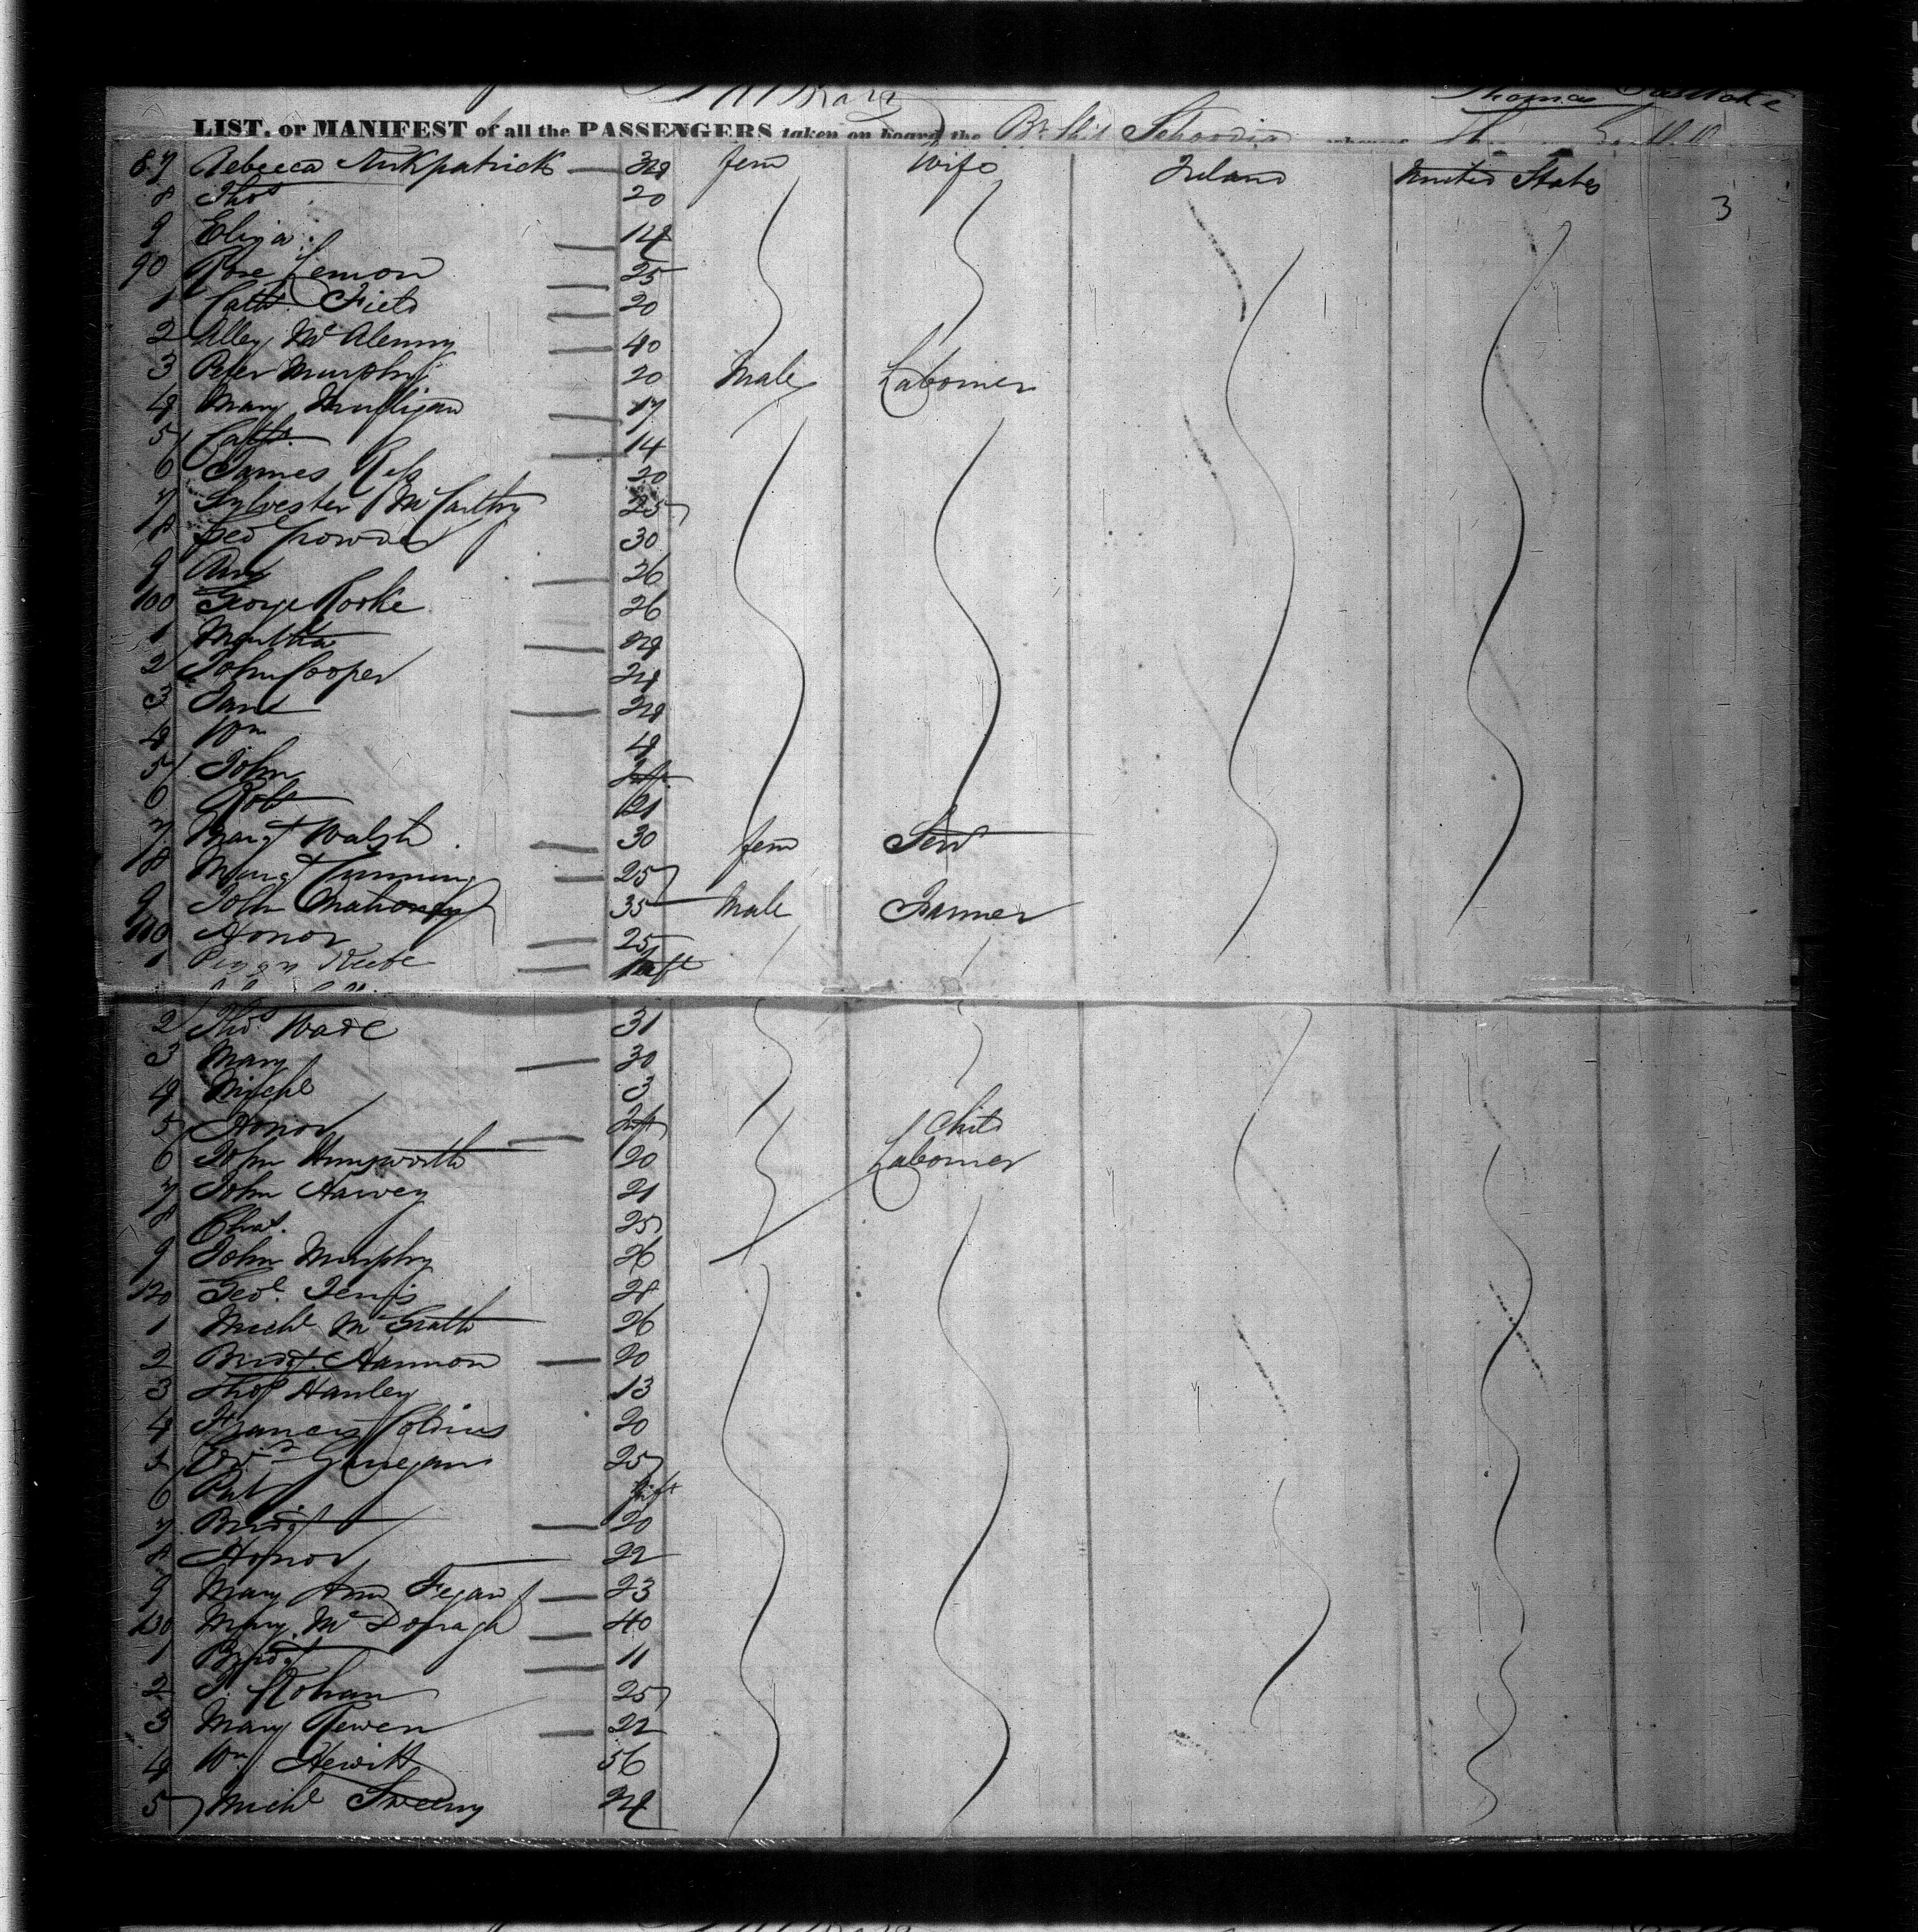 Thomas
LIST, or MANIFEST of all the PASSENGERS taken on board the Br. Ship Schoodiac whereof
87 Rebecca Kirkpatrick 34 fem Wife Ireland United States
8 Thos 20
3
9 Eliza 14
90 Rose Lemon 25
1 Cath. Field 20
2 Alley Mc Alenny 40
3 Peter Murphy 20 Male Labourer
4 Mary Mulligan 17
5 Cath. 14
6 James 20
7 Sylvester McCarthy 25
8 Geo Crowder 30
9 Ann 26
100 George Rooke 26
1 Martha 24
2 John Cooper 24
3 Jane 24
4 Wm 4
5 John Inft
6 Robt 21
7 Margt Walsh 30 fem Servt
8 Margt 25
9 John Mahoney 35 Male Farmer
110 Honor 25
1 Keefe Inft
2 Thos. Wade 31
3 Mary 30
4 Michl 3
5 Honor Inft Child
6 John Hungworth 20 Labourer
7 John Harvey 21
8 Chas. 25
9 John Murphy 26
120 Geo.
1 Michl McGrath 26
2 Bridgt. Hannon 20
3 Thos Hanley 13
4 Francis Collins 20
5 25
6 Pat Inft
7 Bridgt 20
8 Honor 22
9 Mary Ann Fegan 23
130 Mary McDonagh 40
1 Bridgt 11
2 25
3 Mary 22
4 Wm. Hewitt 56
5 Michl Sweeny 24